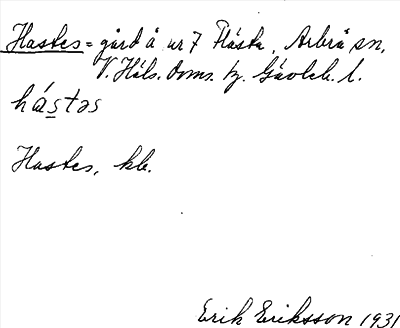 Hastes = gård å nr 7 Flästa, Arbrå sn,
V. Häls. doms. tg. Gävleb. l.
hástəs
Hastes, kb.
Erik Eriksson 1931